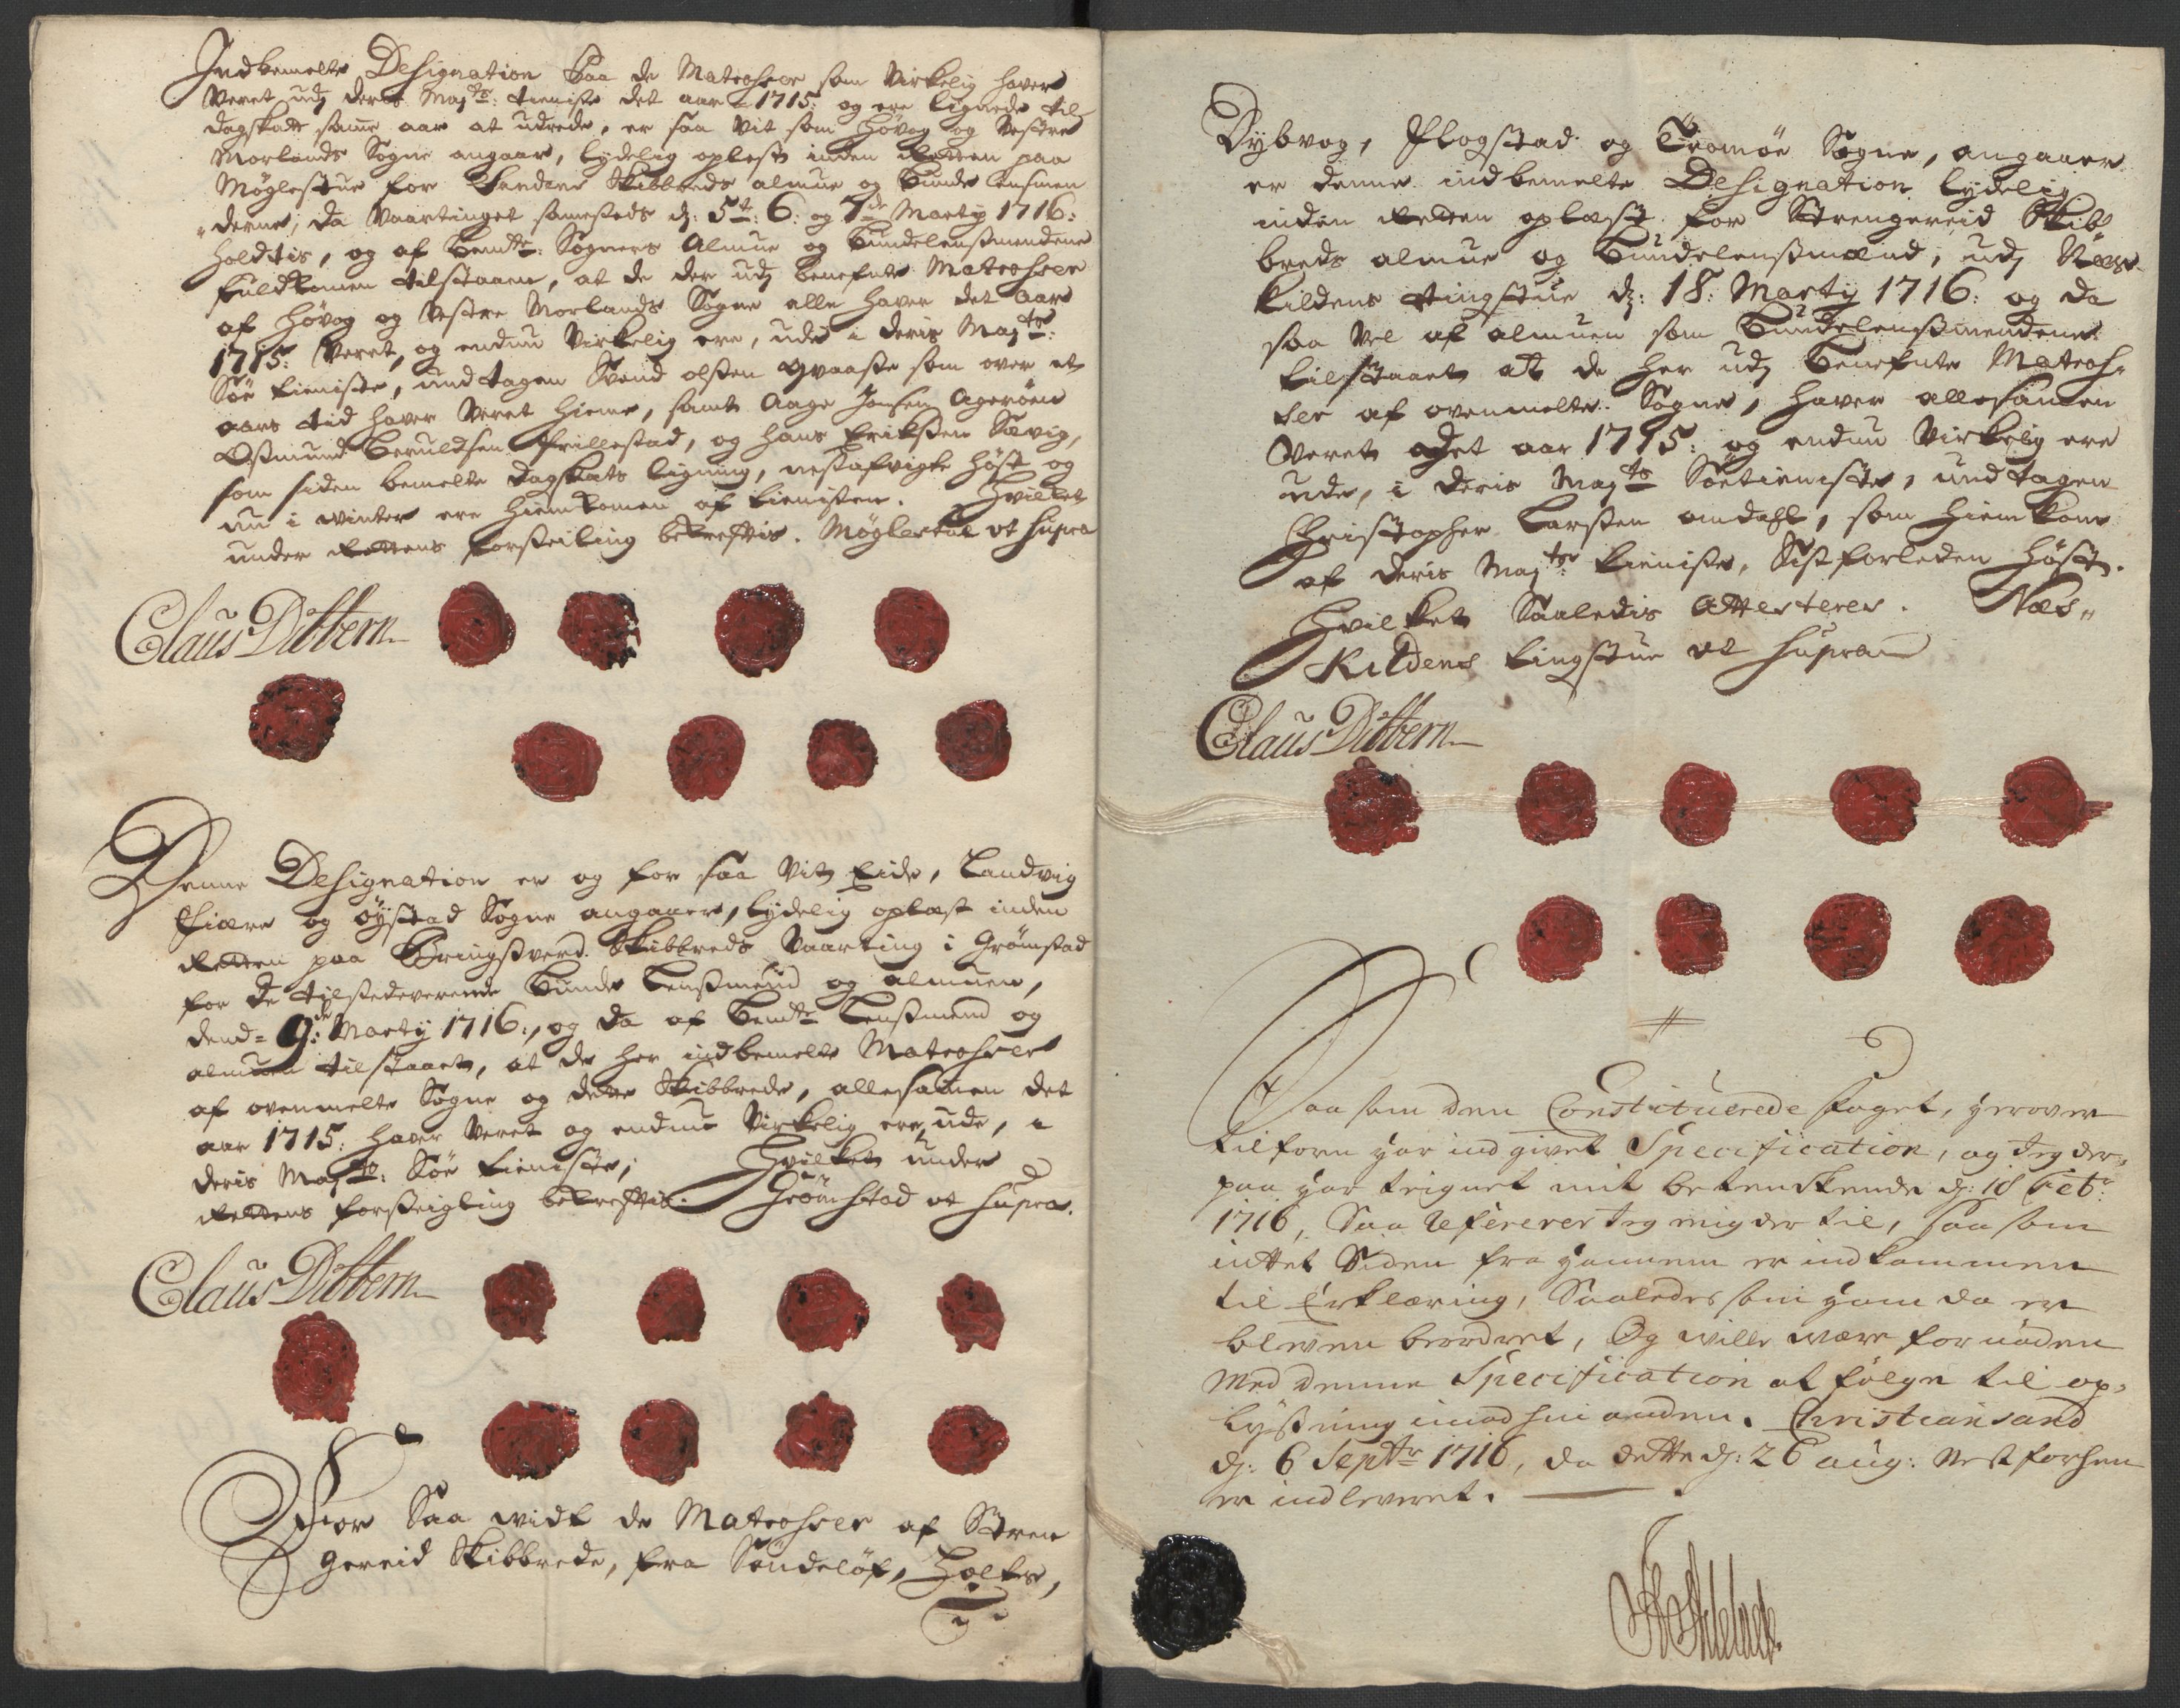 Indbemelte Designation Saa de Matrohser som Virkelig haver
Veret udj deris Maj:ts tieniste det aar 1715: og ere lignede til
dagskatt samme aar at udrede, er saa vit som Høvog og Vestre
Morlands Sogne angaar, lydelig oplest inden Retten paa
Møglestue for Sandnes Skibbreds almue og Bunde Lensmen
derne, da Vaartinget samesteds d: 5te: 6: og 7de Marty 1716:
holdtis, og af bemte: Sogners Almue og Bundelensmendene
fuldkomen tilstaaen, at de der udj benefnte Matrohser
af Høvog og Vestre Morlands Sogne alle haver det aar
1715: Veret, og endnu Virkelig ere, ude i deris Maj:ts
Søe tieniste, undtagen Svend olsen qvaase som over et
aars tid haver Veret hieme, samt Aage Jensen Agerøen
Osmund Beruldsen Trillestad, og Hans Eriksen Sævig,
som siden bemelte dagskats ligning, nestafvigte høst og
nu i winter ere hiemkomen af tienisten. Hvilket
under Rettens forseiling bekreftis. Møglestue ut supra
Claus Dibbern
Denne Designation er og for saa vit Eide, Landvig
Fiære og Øystad Sogne angaaer, lydelig oplæst inden
Retten paa Bringsverd Skibbreds Vaarting i Grømstad
for de tilstedeverende Bunde Lensmend og almuen,
dend 9de: Marty 1716:, og da af bemte Lensmend og
almuen tilstaaet, at de her indbemelte Matrohser
af ovenmelte Sogne og dette Skibbrede, allesamen det
aar 1715: haver Veret og endnu Virkelig ere ude, i
deris Maj:ts: Søe tieniste, Hvilket under
Rettens forseigling bekreftis. Grømstad ut supra.
Claus Dibbern
For Saa widt de Matrohser af Stren
gereid Skibbrede, fra Søndeløf, Holtes,
Dybvog, Flogstad og Tromøe Sogne, angaaer
er denne indbemelte Designation lydelig
inden Retten oplæst for Strengereid Skib
breds almue og Bundelensmænd, udj Næs
kildens tingstue d: 18: Marty 1716: og da
saa vel af almuen som Bundelensmendene
tilstaaet at de her udj benefnte Matroh,
ser af ovenmelte Sogne, haver allesamen
Veret det aar 1715: og endnu Virkelig ere
ude, i deris Maj:ts Søetieniste, undtagen
Christopher Larsen omdahl, som hiemkom
af deris Maj:ts tieniste, Sist forleden høst.
Hvilket Saaledis Attesterer. Næs,,
Kildens tingstue ut supra
Claus Dibbern
Saa som den Constituerede foget, herover
tilforn har indgivet Specification, og Jeg der,
paa har teignet mit betenkende d: 18 Feb:
1716, Saa Refererer Jeg mig der til, saa som
inttet Siden fra hannem er indkommen
til Erklæring, Saaledes som ham da er
bleven beordret, Og wille være fornøden
Med denne Specification at følge til op,
lysning imod hin anden. Christiansand
d: 6 Septr 1716, da dette d: 26 aug: Nest forhen
er indleveret.